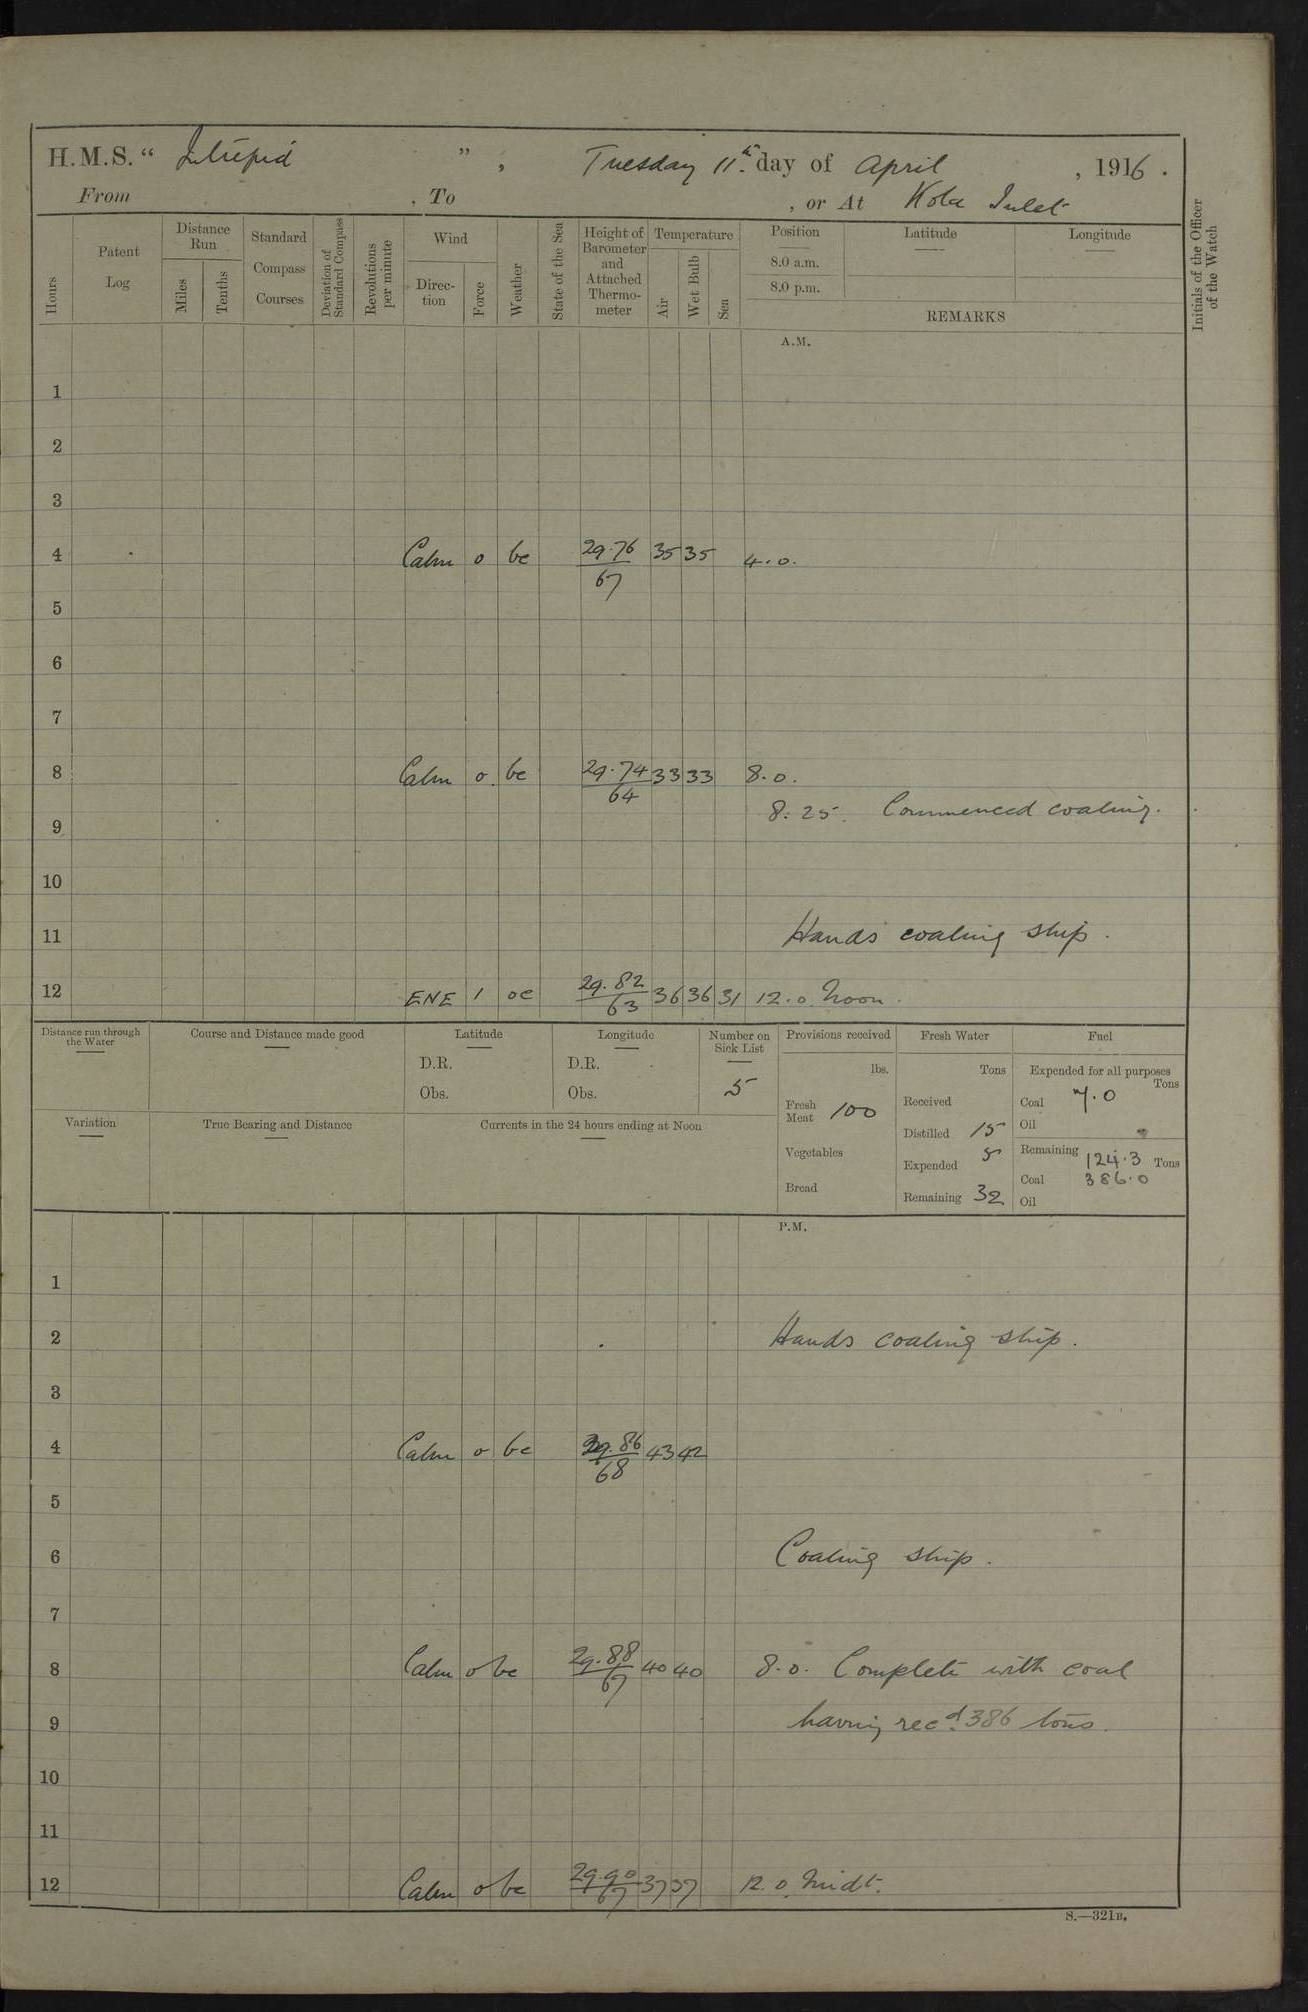 H.M.S. " Intrepid " , Tuesday 11th day of April , 1916 .
From , To , or At Kola Inlet
Hours
Patent Log
Distance Run
Miles
Tenths
Standard Compass Courses
Deviation of Standard Compass
Revolutions per minute
Wind
Direction
Force
Weather
State of the Sea
Height of Barometer and Attached Thermometer
Temperature
Air
Wet Bulb
Sea
Position
8.0 a.m.
8.0 p.m.
Latitude
Longitude
REMARKS
Initials of the Officer of the Watch
A.M.
1
2
3
4 Calm 0 bc 29.76/67 35 35 4.0.
5
6
7
8 Calm 0 bc 29.74/64 33 33 8.0.
8.25. Commenced coaling.
9
10
11 Hands coaling ship.
12 ENE 1 oc 29.82/63 36 36 31 12.0 Noon.
Distance run through the Water
Course and Distance made good
Latitude
D.R.
Obs.
Longitude
D.R.
Obs.
Number on Sick List
5
Provisions received
lbs.
Fresh Meat 100
Vegetables
Bread
Fresh Water
Tons
Received
Distilled 15
Expended 5
Remaining 32
Fuel
Expended for all purposes
Tons
Coal 7.0
Oil
Remaining 124.3 Tons
Coal 386.0
Oil
Variation
True Bearing and Distance
Currents in the 24 hours ending at Noon
P.M.
1
2 Hands coaling ship.
3
4 Calm 0 bc 29.86/68 43 42
5
6 Coaling ship.
7
8 Calm 0 bc 29.88/67 40 40 8.0. Complete with coal
9 having recd. 386 tons.
10
11
12 Calm 0 bc 29.90/67 37 37 12.0. Midt.
S.—321B.